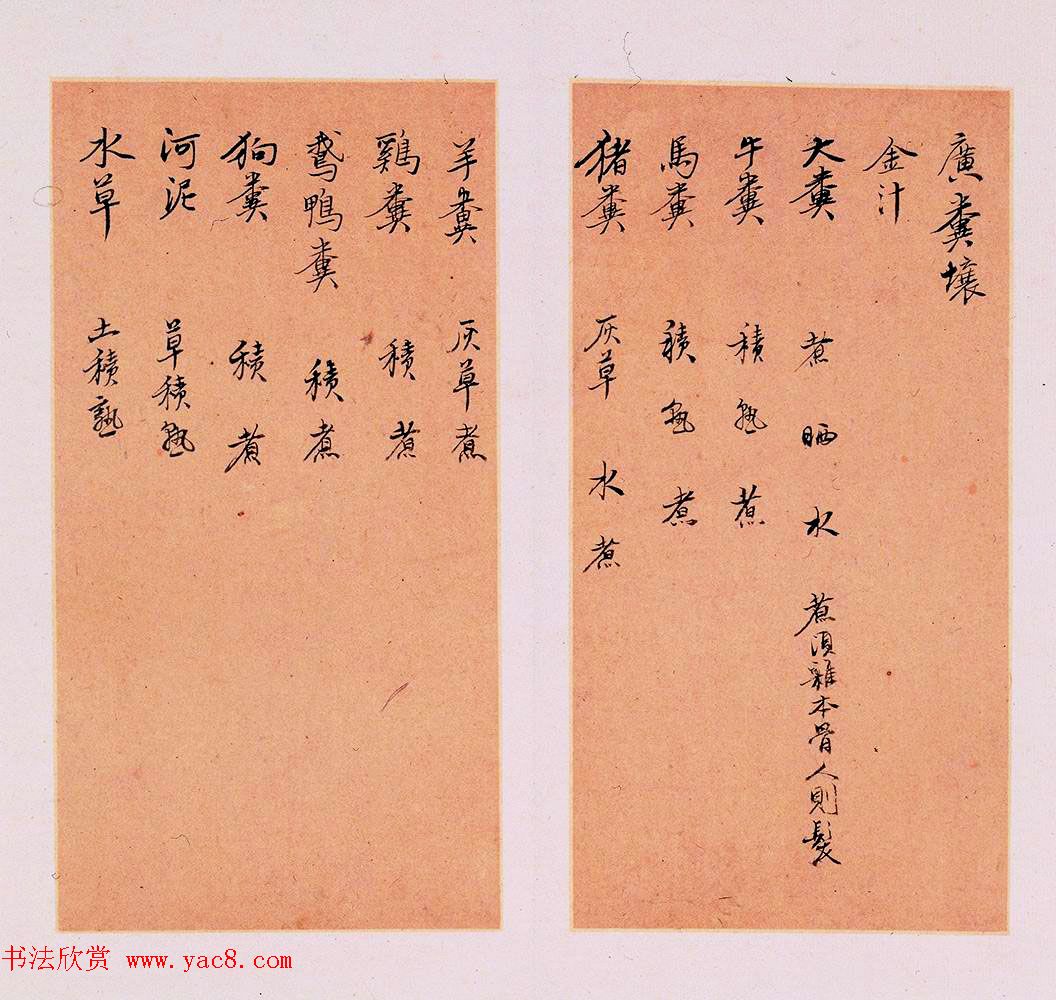 廣糞壤
金汁
大糞 煮 晒 水 煮須雜本骨人則髮
牛糞 積 熟 煮
馬糞 積 熟 煮
猪糞 灰草 水 煮
羊糞 灰草煮
鷄糞 積 煮
鵞鴨糞 積 煮
狗糞 積 煮
河泥 草積熟
水草 土積熟
书法欣赏 www.yac8.com